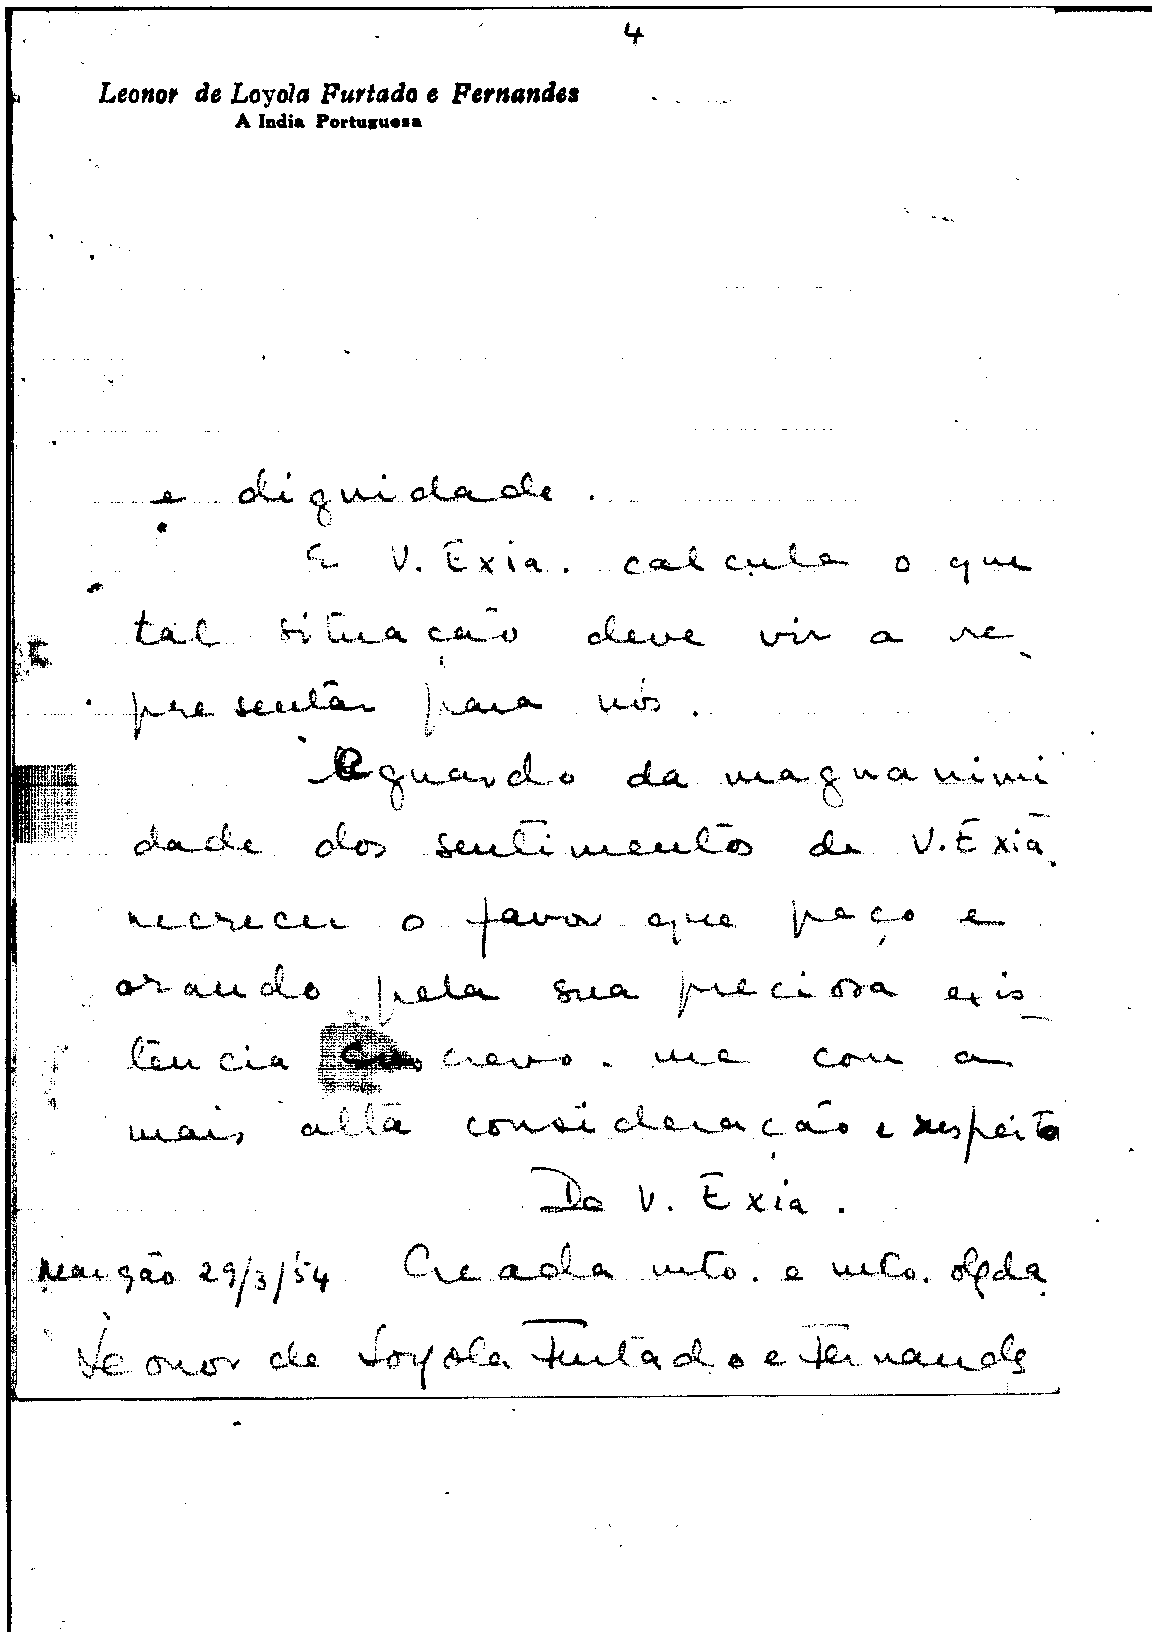 4
Leonor de Loyola Furtado e Fernandes
A India Portuguesa
e dignidade.
E V. Exia. calcula o que
tal situação deve vir a re-
presentar para nós.
Aguardo da magnanimi
dade dos sentimentos de V. Exia.
merecer o favor que peço e
orando pela sua preciosa exis-
tência crevo-me com a
mais alta consideração e respeito
De V. Exia.
Margão 29/3/54 Creada mto. e mto. obgda.
Leonor de Loyola Furtado e Fernandes